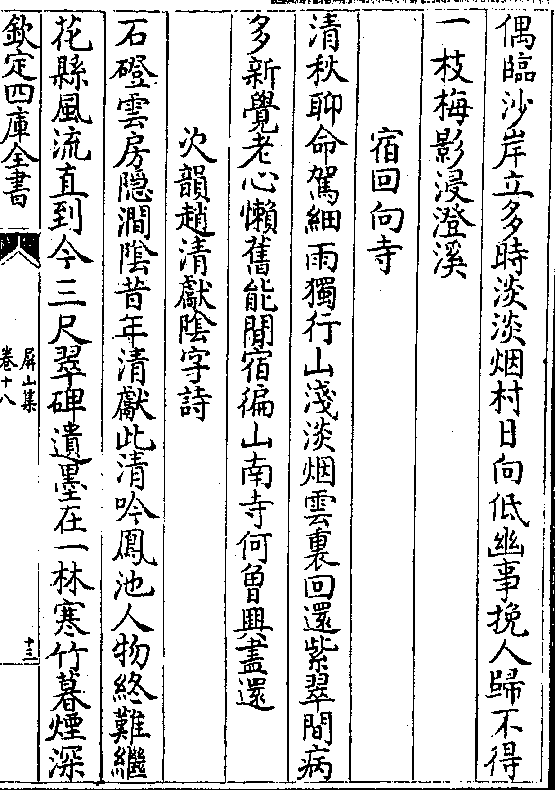 偶臨沙岸立多時淡淡烟村日向低幽事挽人歸不得
一枝梅影浸澄溪
宿回向寺
清秋聊命駕細雨獨行山淺淡烟雲裏回還紫翠間病
多新覺老心懶舊能閒宿徧山南寺何曽興盡還
次韻趙清獻陰字詩
石磴雲房隠澗陰昔年清獻此清吟鳳池人物終難繼
花縣風流直到今三尺翠碑遺墨在一林寒竹暮煙深
欽定四庫全書
屏山集
卷十八
十三